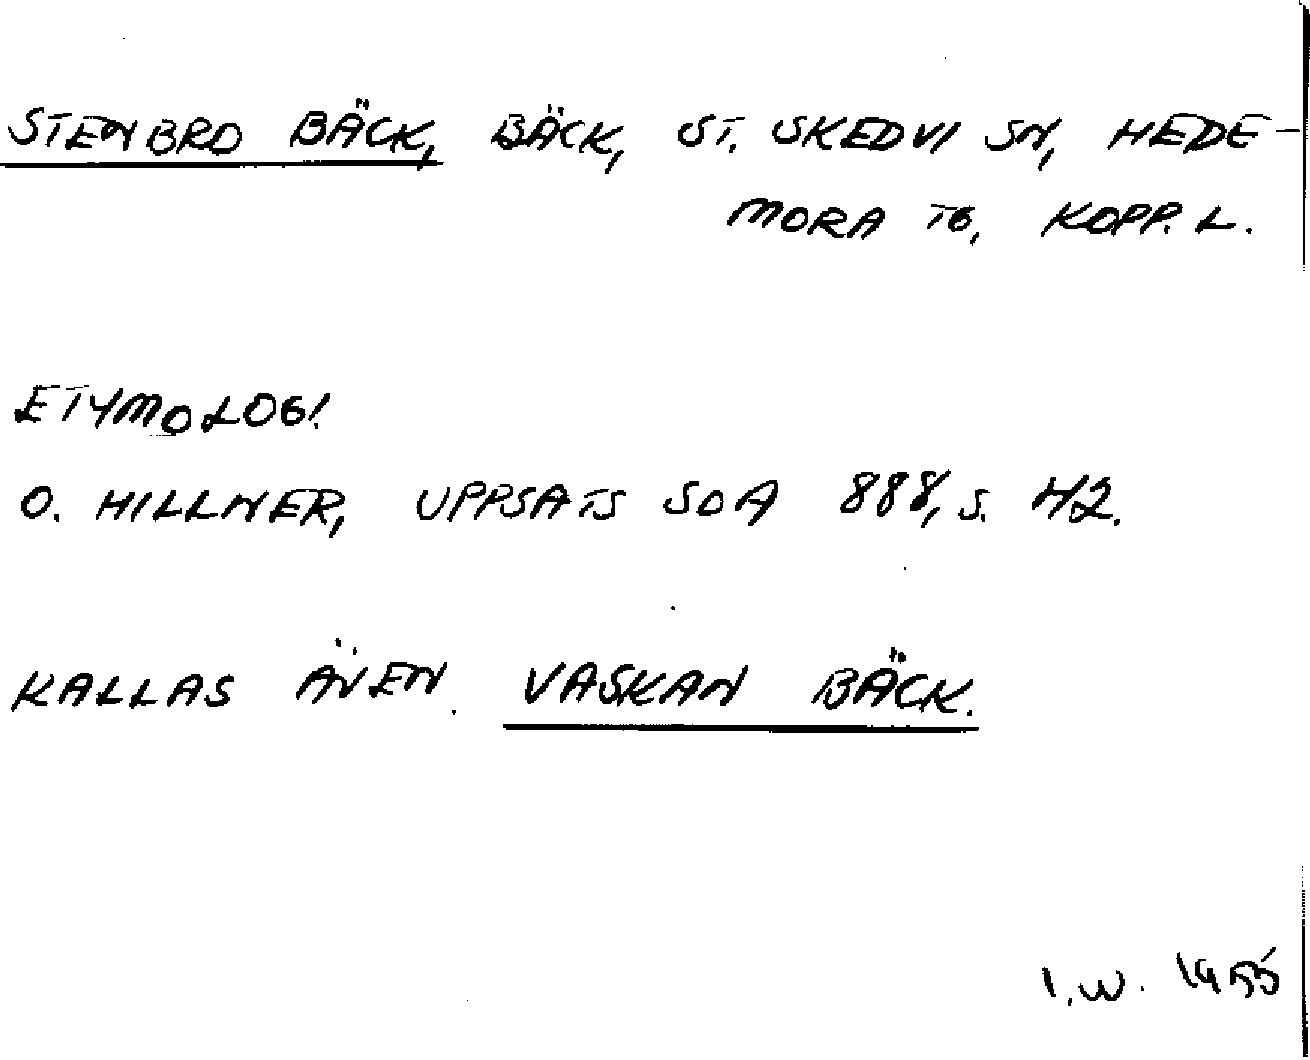 STENBRO BÄCK, BÄCK, ST. SKEDVI SN, HEDE-
MORA TG, KOPP. L.
ETYMOLOGI.
O. HILLNER, UPPSATS SOA 888, S. 42.
KALLAS ÄVEN VASKAN BÄCK.
I.W. 1955